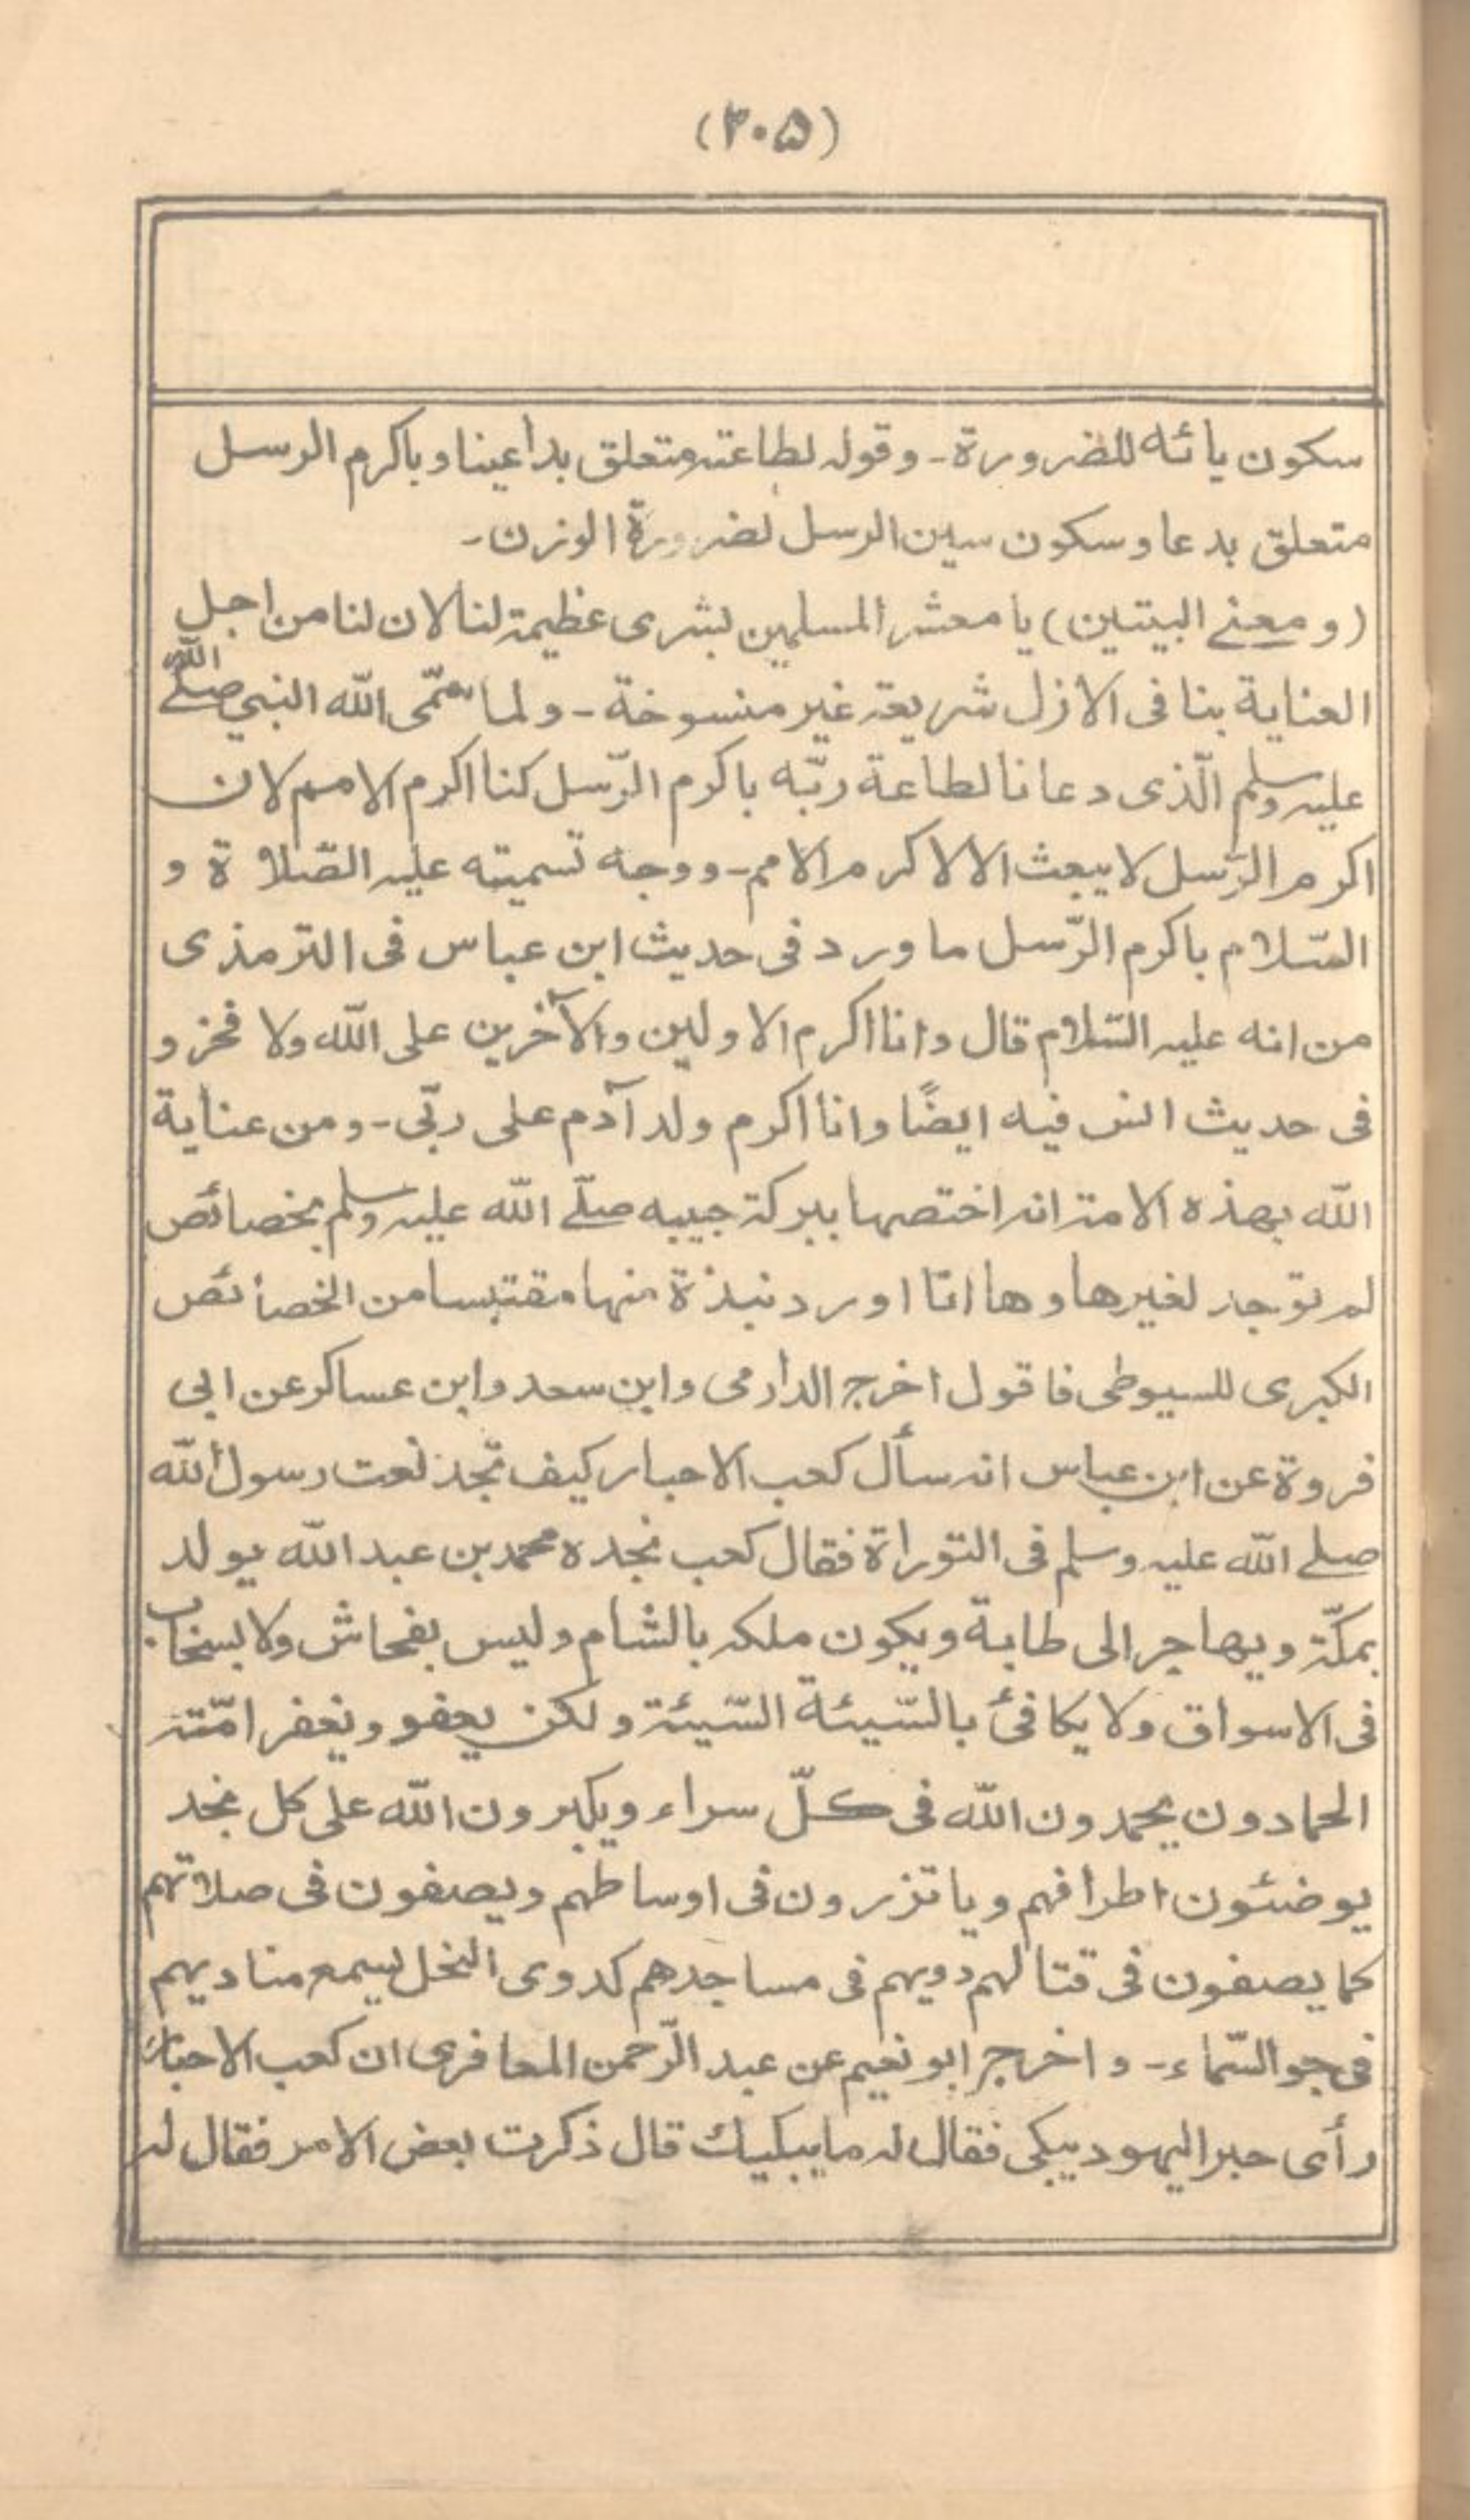 (٣٠٥)
سكون يائه للضرورة - وقوله لطاعته متعلق بداعينا وباكرم الرسل
متعلق بدعا وسكون سين الرسل لضرورة الوزن -
(ومعنے البيتين) يا معشر المسلمين بشرى عظيمة لنا لان لنا من اجل
العناية بنا فى الازل شريعة غير منسوخة - ولما سمّى الله النبي صلے الله
عليه وسلم الّذى دعانا لطاعة ربّه باكرم الرّسل كنا اكرم الامم لان
اكرم الرّسل لا يبعث الا لاكرم الامم - ووجه تسميته عليه الصّلاة و
السّلام باكرم الرّسل ما ورد فى حديث ابن عباس فى الترمذى
من انه عليه السّلام قال وانا اكرم الاولين والآخرين على الله ولا فخر و
فى حديث انس فيه ايضًا وانا اكرم ولد آدم على ربّى - ومن عناية
الله بهذه الامة انه اختصها ببركة حبيبه صلّے الله عليه وسلم بخصائص
لم توجد لغيرها وها انا اورد نبذة منها مقتبسا من الخصائص
الكبرى للسيوطى فاقول اخرج الدارمى وابن سعد وابن عساكر عن ابى
فروة عن ابن عباس انه سأل كعب الاحبار كيف تجد نعت رسول الله
صلے الله عليه وسلم فى التوراة فقال كعب نجده محمد بن عبد الله يولد
بمكّة ويهاجر الى طابة ويكون ملكه بالشام وليس بفحاش ولا بسخاب
فى الاسواق ولا يكافئ بالسّيئة السّيئة ولكن يعفو ويغفر امّته
الحمادون يحمدون الله فى كلّ سراء ويكبرون الله على كل نجد
يوضئون اطرافهم وياتزرون فى اوساطهم ويصفون فى صلاتهم
كما يصفون فى قتالهم دويهم فى مساجدهم كدوى النحل يسمع مناديهم
فى جو السّماء - واخرج ابو نعيم عن عبد الرّحمن المعافرى ان كعب الاحبار
رأى حبر اليهود يبكى فقال له ما يبكيك قال ذكرت بعض الامر فقال له